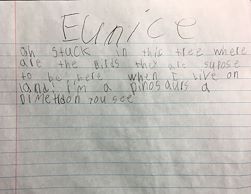 Eunice
oh stuck in this tree where
are the birds they are supose
to be here when I live on
land! I'm a Dinosaurs a
Dimetridon you see